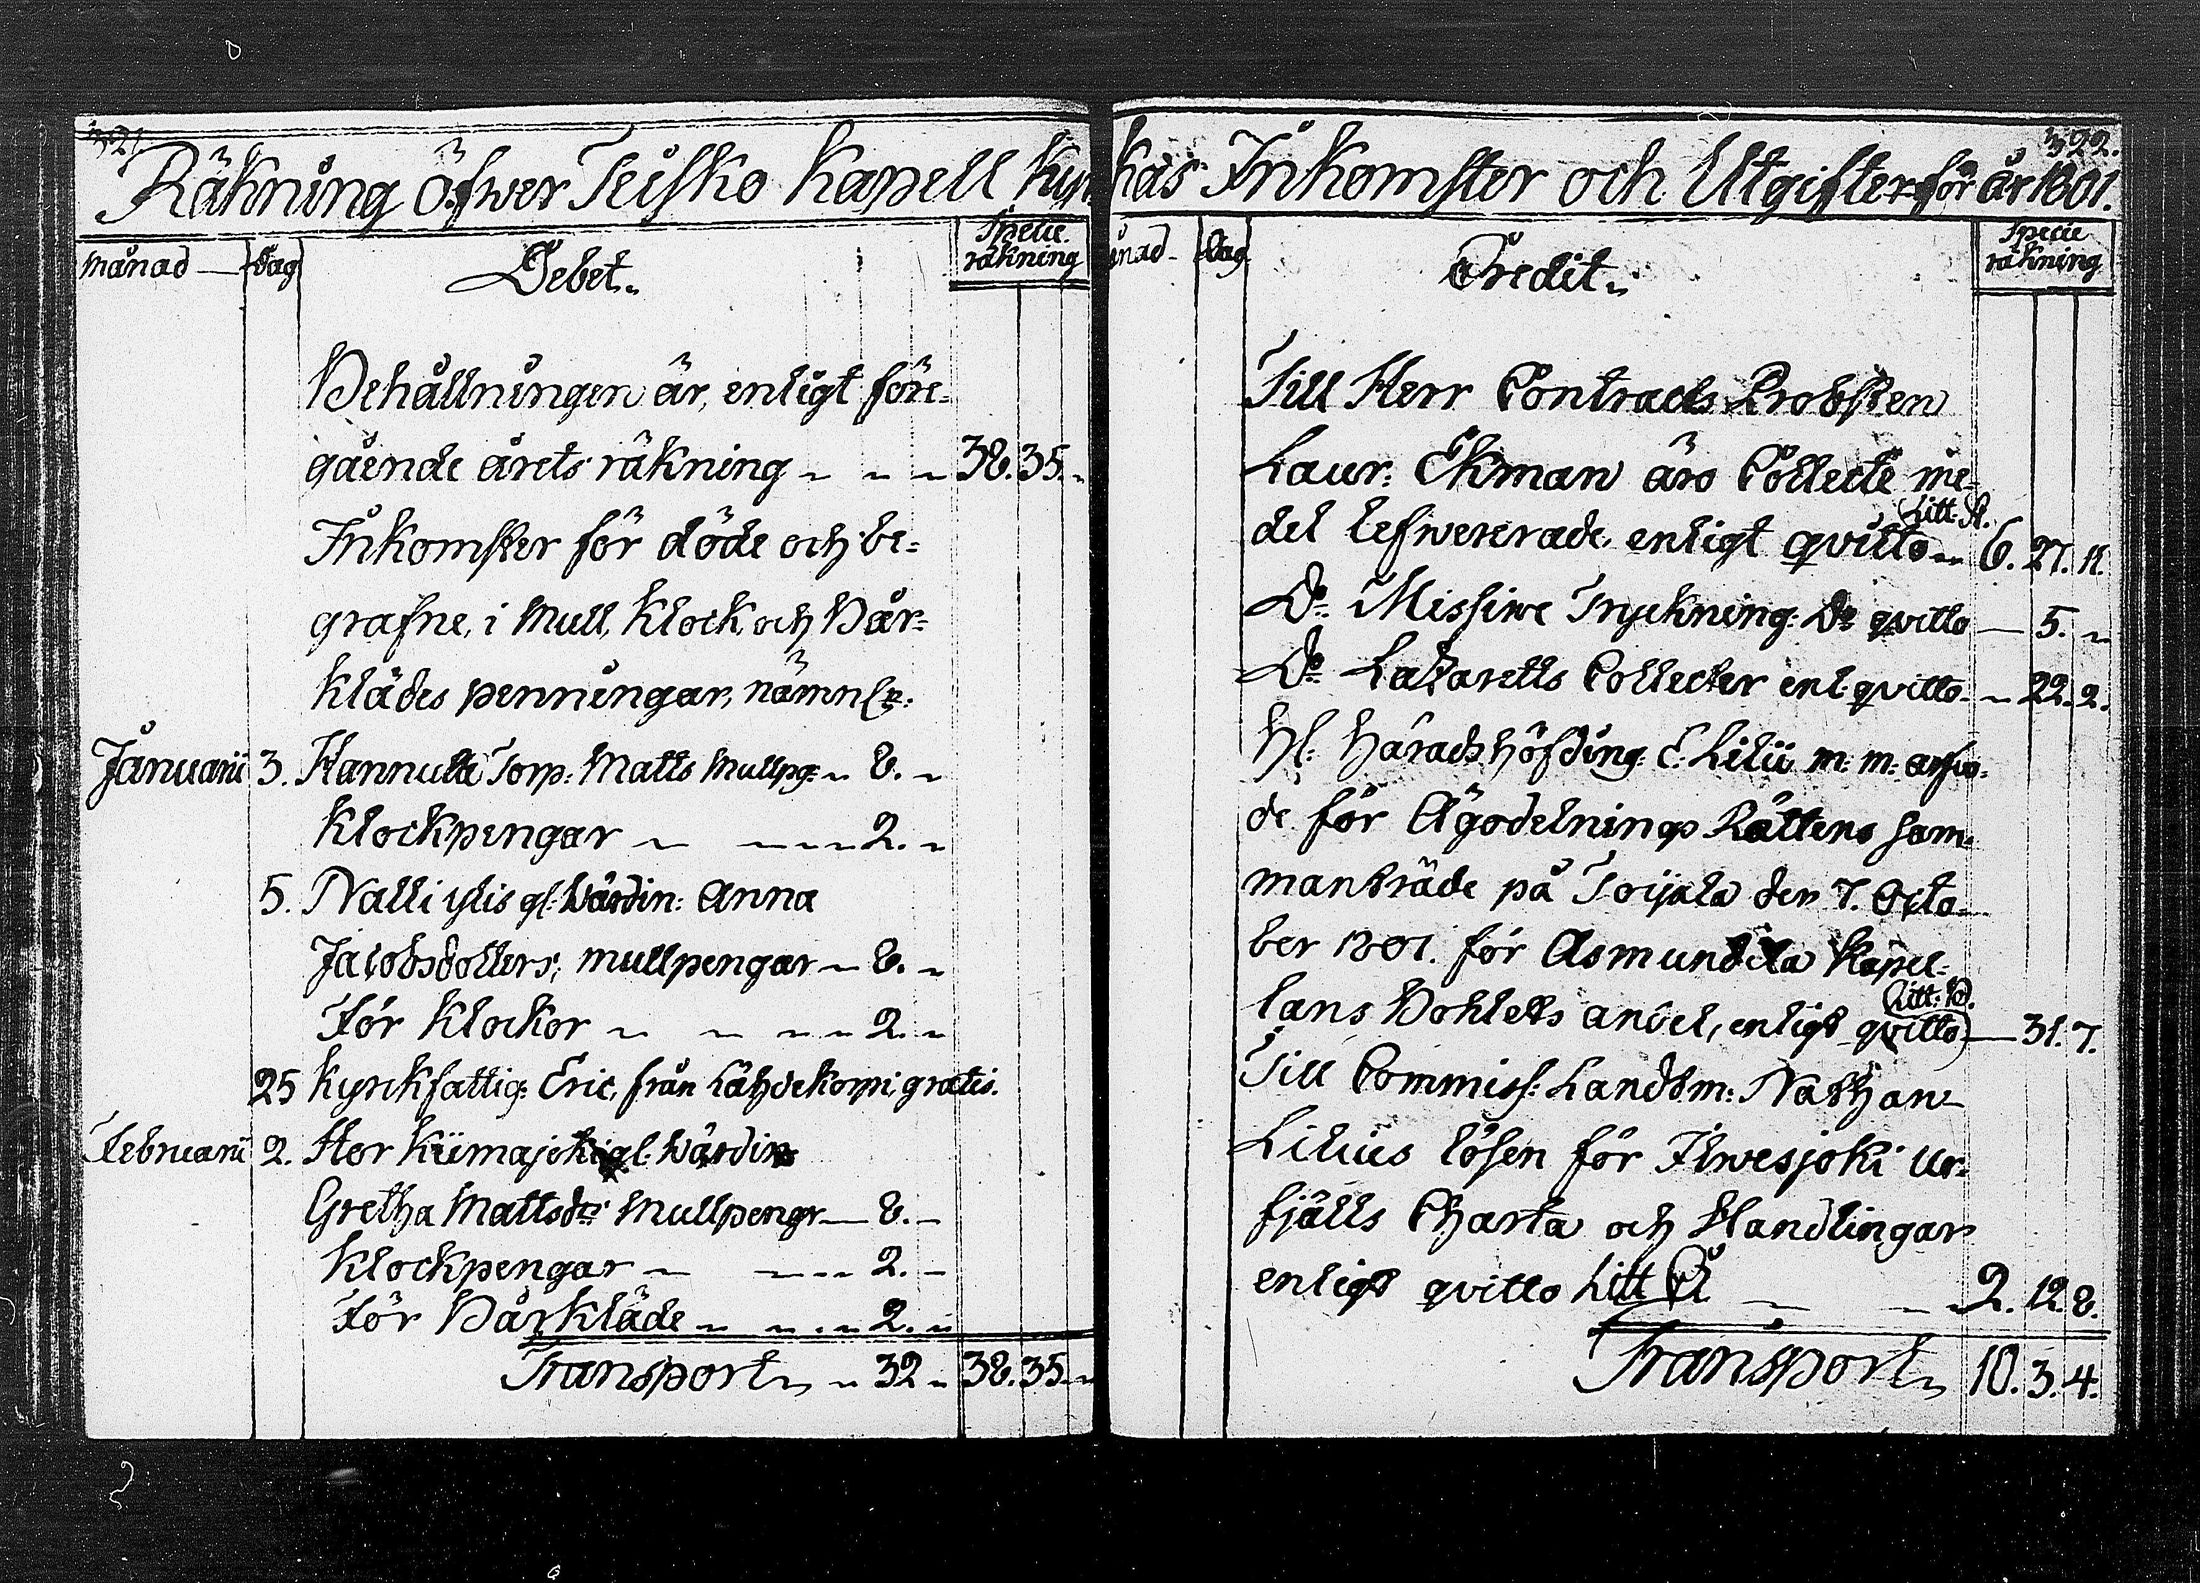 321.
Räkning öfwer Teisko Kapell Kyr
månad dag Debet. Specie räkning
Behållningen är, enligt före-
gående årets räkning 38. 35.
Inkomster för döde och be-
grafne, i Mull, Klock och Bår-
klädes penningar, nämnl:
Januarii 3. Hannula Torp: Matts Mullpg: 8.
Klockpengar 2.
5. Nalli ylis gl: Wärdin: Anna
Jacobsdotters, mullpengar 8.
För Klockor 2.
25 Kyrkfattig: Eric, från Lähdekorpi, gratis.
Februarii 2. Hor Kiimajoki gl: Wärdin
Gretha Mattsdr: Mullpengr 8.
Klockpengar 2.
För Bårkläde 2.
Transport 32 38. 35.
322.
kas Inkomster och Utgifter för år 1801.
ånad Dag Credit. Specie räkning
Till Herr Contracts Probsten
Laur: Ekman äro Collecte me-
del lefwererade, enligt qvitto Litt: A. 6. 27. 11.
Do Missive Tryckning: Do qvitto 5.
Do Lazaretts Collecter enl: qvitto 22. 2.
Hl: Häradshöfding: E: Lilii m: m: arfwo-
de för Ägodelnings Rättens sam-
manträde på Toijala den 7. Octo-
ber 1801. för Asmundila Kapel-
lans Bohlets andel, enligt qvitto Litt: B. 31. 7.
Till Commiss: Landtm: Nathan:
Lilius lösen för Ilwesjoki Ur-
fjälls Charta och Handlingar
enligt qvitto Litt C 2. 12. 8.
Transport 10. 3. 4.